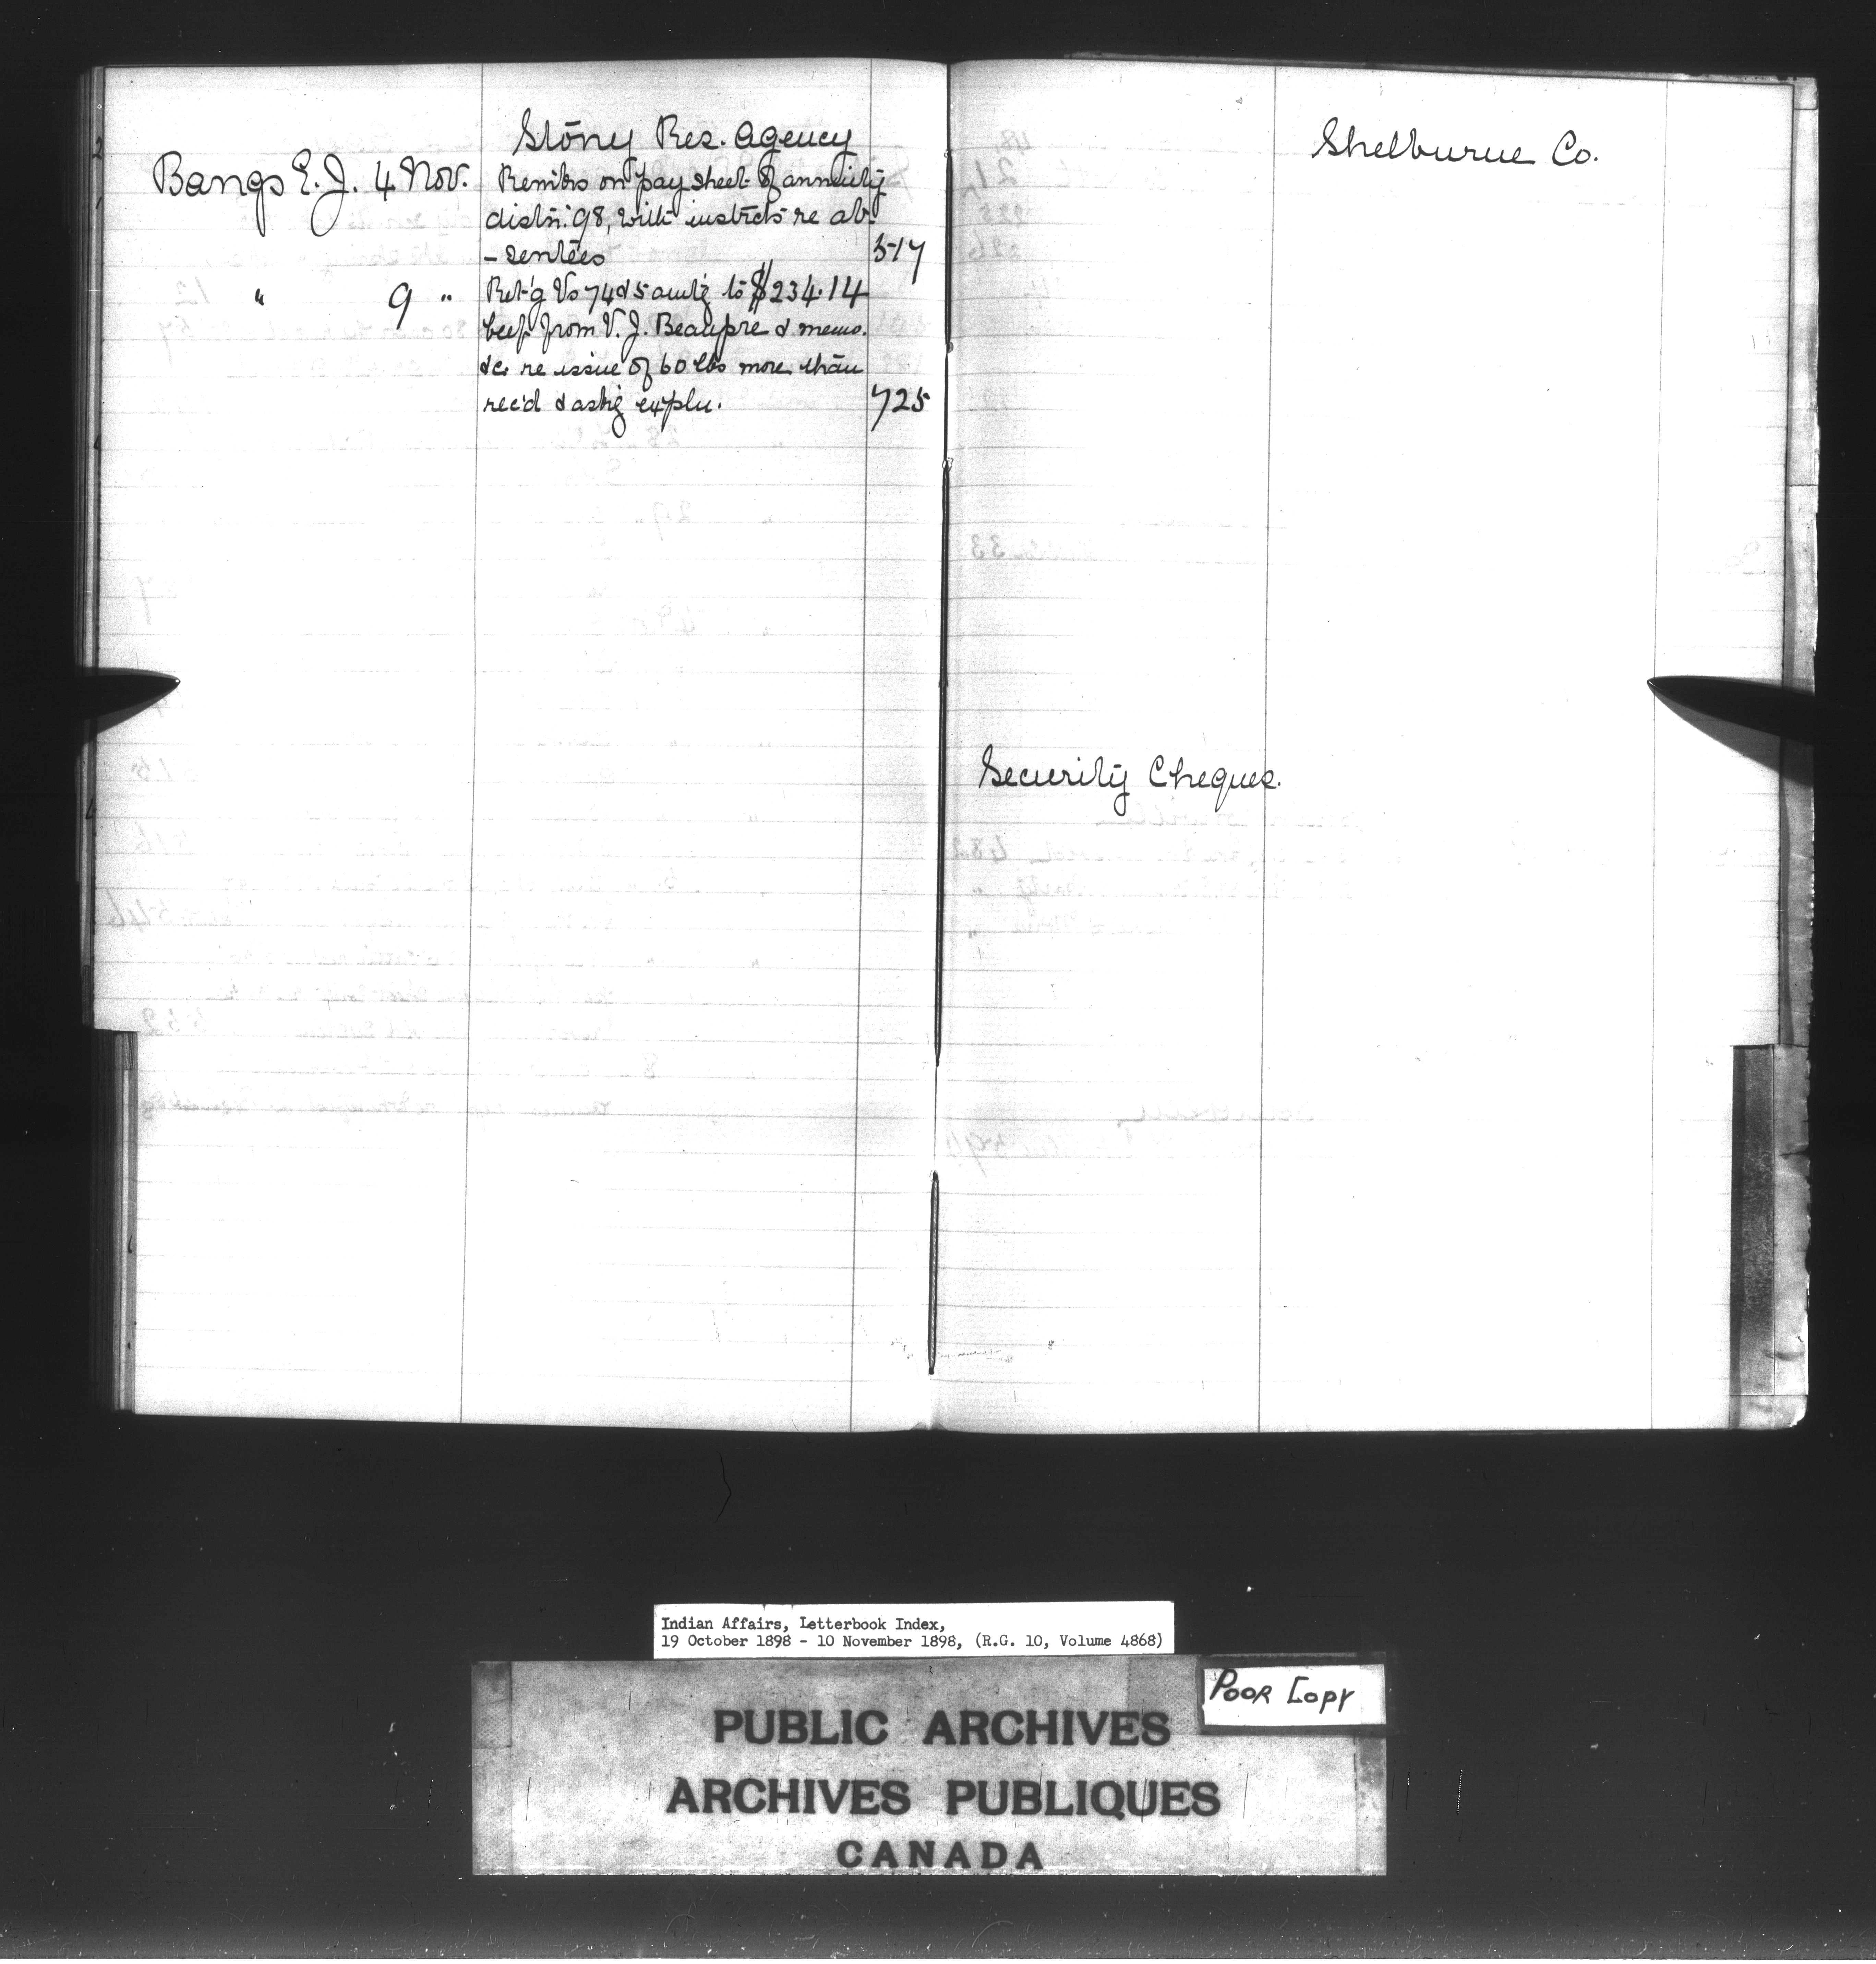 Stony Res. Agency
Bangs E. J. 4 Nov. Remks on pay sheet of annuity
distn. '98, with instrcts re ab-
- sentees 517
" 9 " Ret'g Vo 74 & 5 amtg to $234.14
beef from V. J. Beaupre & memo.
&c. re issue of 60 lbs more than
rec'd & askg expln. 725
Shelburne Co.
Security Cheques.
Indian Affairs, Letterbook Index,
19 October 1898 - 10 November 1898, (R.G. 10, Volume 4868)
POOR COPY
PUBLIC ARCHIVES
ARCHIVES PUBLIQUES
CANADA